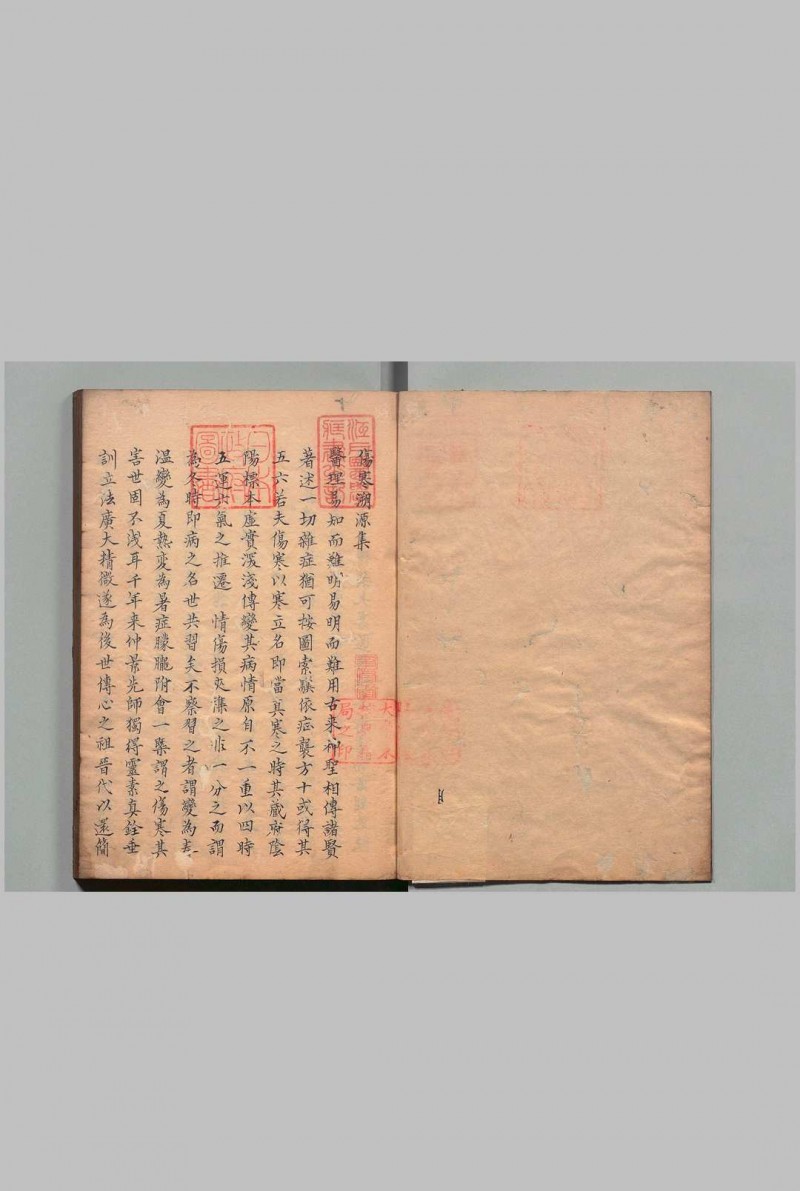 傷寒溯源集
醫理易知而難明易明而難用古来神聖相傳諸賢
著述一切雜症猶可按圖索驥依症襲方十或得其
五六若夫傷寒以寒立名即當其寒之時其藏府陰
陽標本虛實深淺傳變其病情原自不一重以四時
五運六氣之推遷 情傷損夾雜之非一分之而謂
為冬時即病之名世共習矣不察習之者謂變為春
温變為夏熱变為暑症朦朧附會一槩謂之傷寒其
害世固不浅耳千年来仲景先師獨得靈素真銓垂
訓立法廣大精微遂為後世傳心之祖晉代以還簡